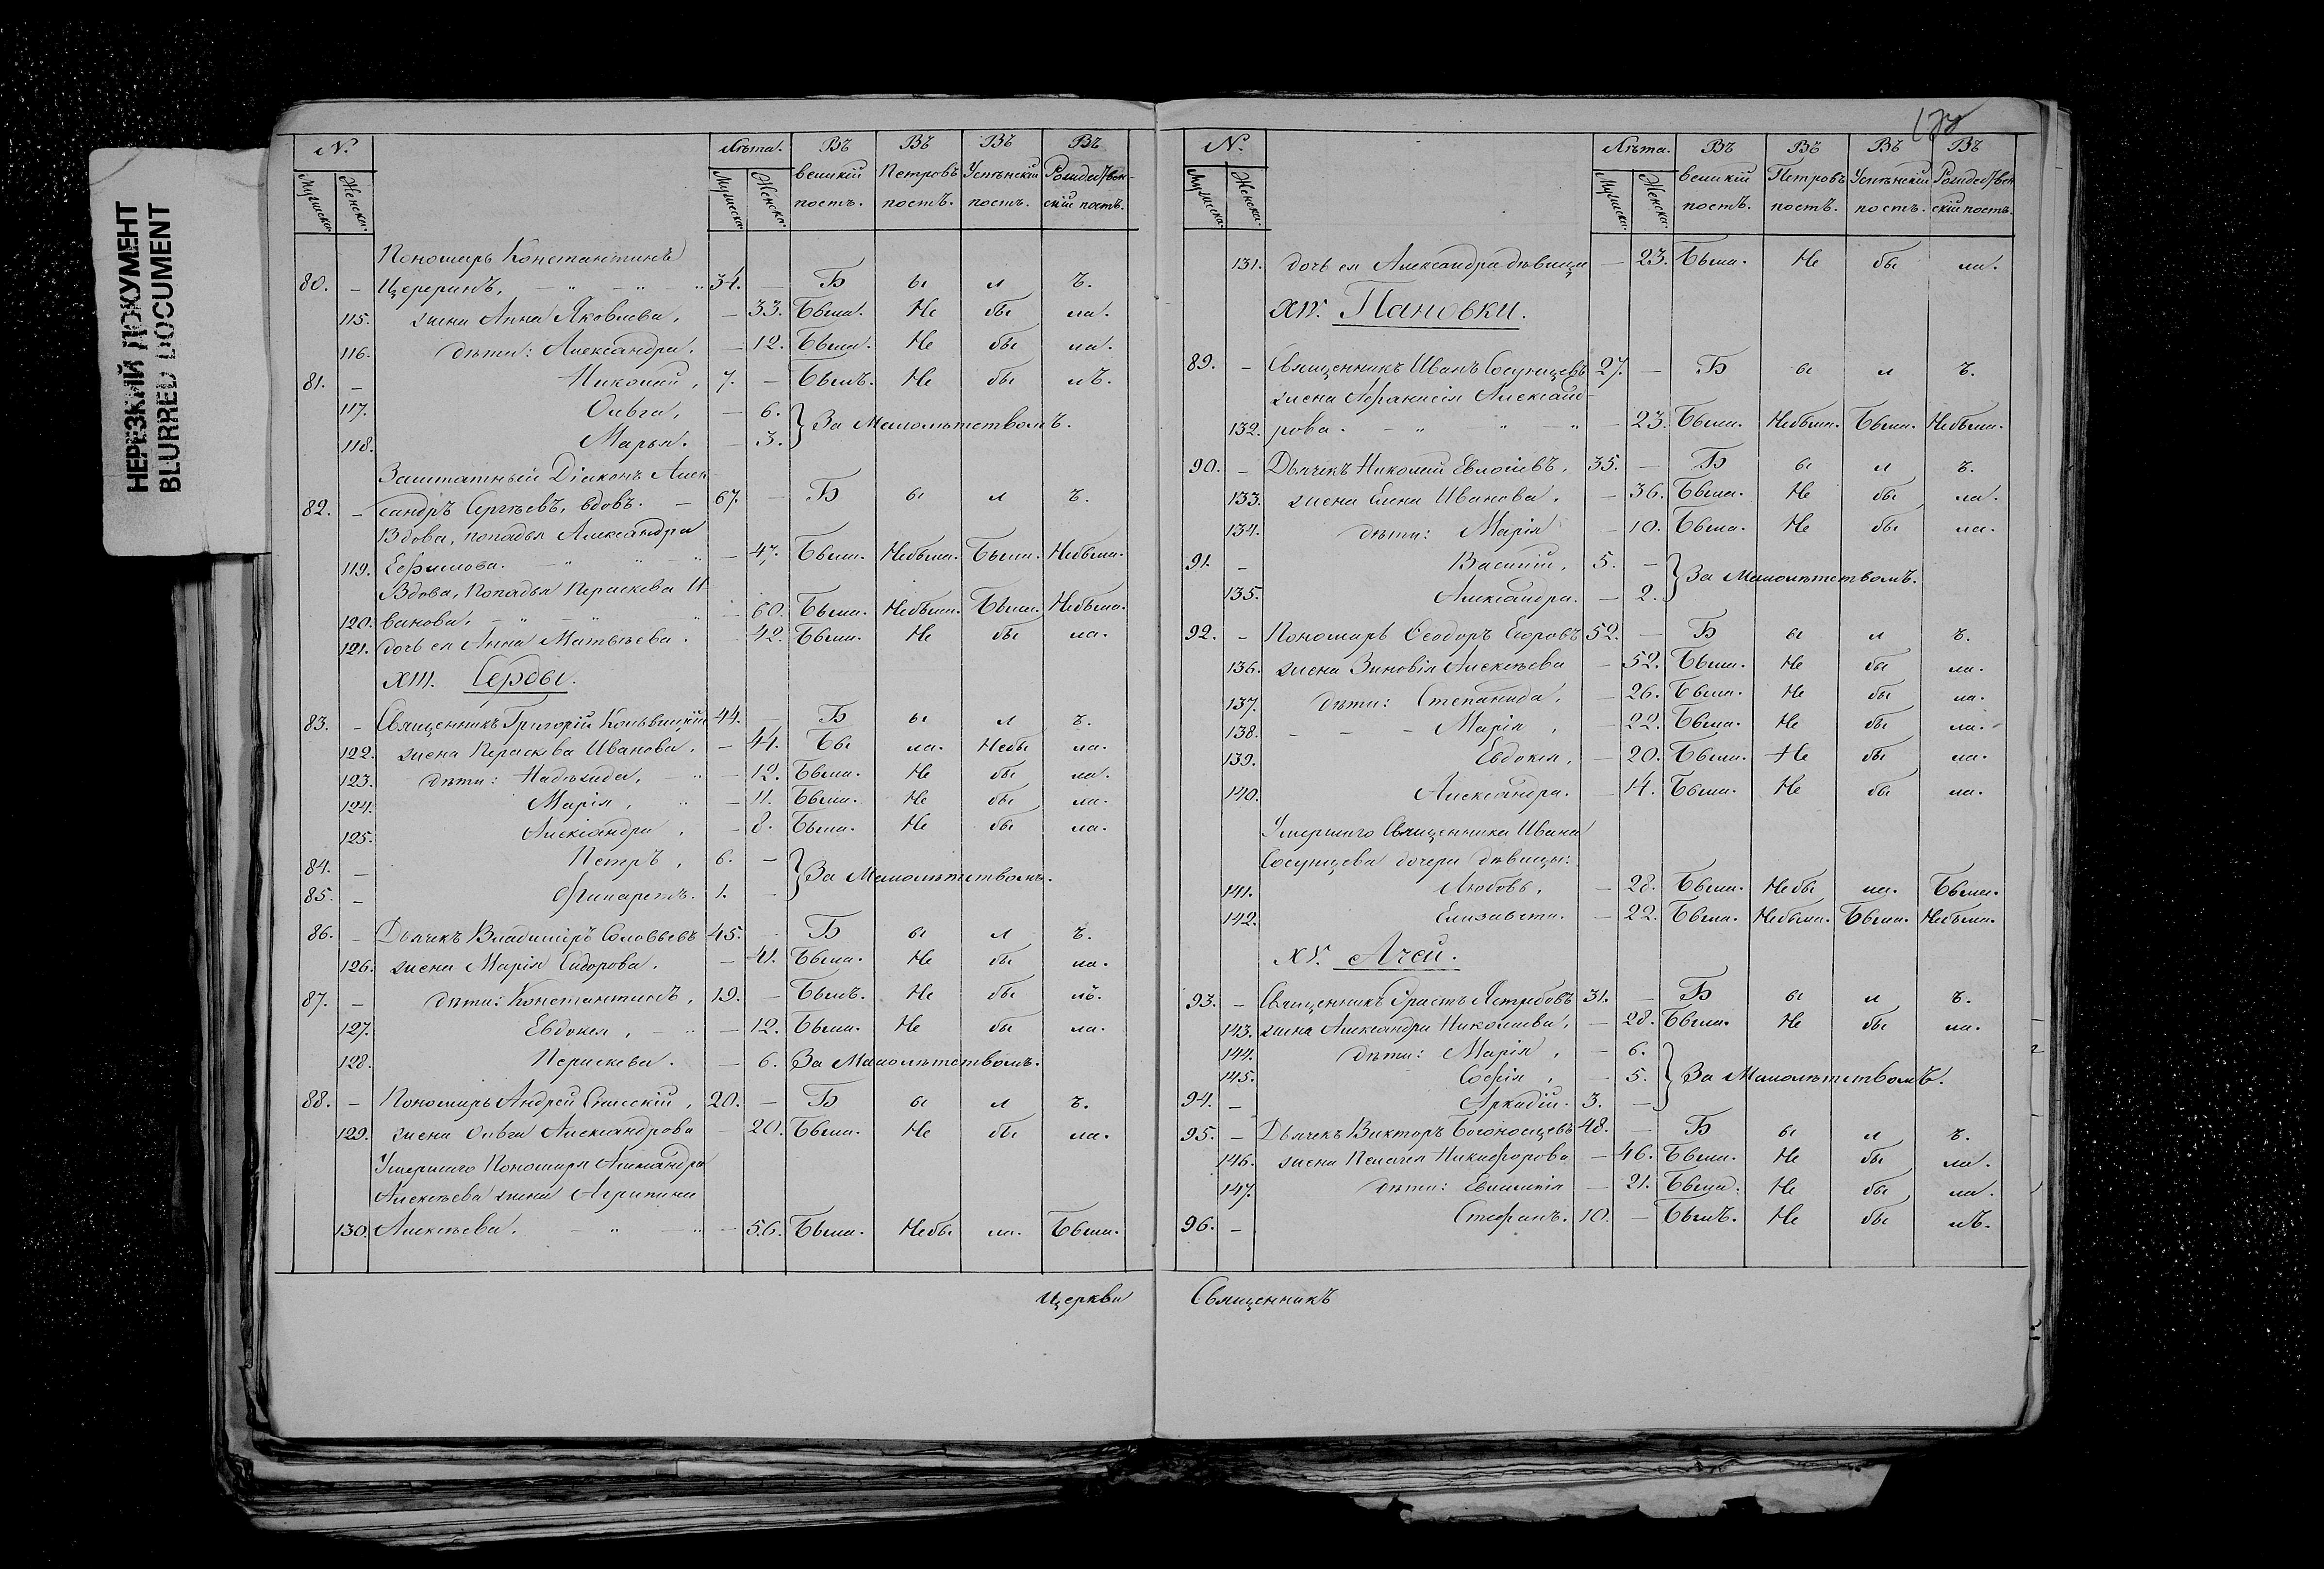 НЕРЕЗКИЙ ДОКУМЕНТ
BLURRED DOCUMENT
№. Лѣта. Въ Въ Въ Въ
Мужеска. Женска. Мужеска. Женска. великій постъ. Петровъ постъ. Успѣнскій постъ. Рождественскій постъ.
Пономарь Константинъ
80. – Цереринъ, 34. – Б ы л ъ.
115. жена Анна Яковлева, – 33. Была. Не бы ла.
116. дѣти: Александра, – 12. Была. Не бы ла.
81. – Николай, 7. – Былъ. Не бы лъ.
117. Ольга, – 6. } За Малолѣтствомъ.
118. Марья. – 3.
Заштатный Діаконъ Алек-
82. – сандръ Сергѣевъ, вдовъ. – 67. – Б ы л ъ.
Вдова, попадья Александра
119. Ефимова. – 47. Была. Небыла. Была. Небыла.
Вдова, Попадья Параскева И-
120. ванова, – 60. Была. Небыла. Была. Небыла.
121. дочь ея Анна Матвѣева. – 42. Была. Не бы ла.
XIII. Серды.
83. – Священникъ Григорій 44. – Б ы л ъ.
122. жена Параскева Иванова, – 44. Бы ла. Небы ла.
123. дѣти: Надежда, – 12. Была. Не бы ла.
124. Марія, – 11. Была. Не бы ла.
125. Александра, – 8. Была. Не бы ла.
84. – Петръ, 6. – } За Малолѣтствомъ.
85. – Филаретъ. 1. –
86. – Дьячекъ Владиміръ Соловьевъ 45. – Б ы л ъ.
126. жена Марія Сидорова, – 41. Была. Не бы ла.
87. – дѣти: Константинъ, 19. – Былъ. Не бы лъ.
127. Евдокея, – 12. Была. Не бы ла.
128. Параскева. – 6. За Малолѣтствомъ.
88. – Пономарь Андрей Спасскій, 20. – Б ы л ъ.
129. жена Ольга Александрова – 20. Была. Не бы ла.
Умершаго Пономаря Александра
Алексѣева жена Агрипина
130. Алексѣева. – 56. Была. Небы ла. Была.
Церкви
№. Лѣта. Въ Въ Въ Въ
Мужеска. Женска. Мужеска. Женска. великій постъ. Петровъ постъ. Успѣнскій постъ. Рождественскій постъ.
131. дочь ея Александра дѣвица – 23. Была. Не бы ла.
XIV. Пановки.
89. – Священникъ Иванъ Сосунцевъ 27. – Б ы л ъ.
жена Афанасія Александ-
132. рова. – 23. Была. Небыла. Была. Небыла.
90. – Дьячекъ Николай Евлогіевъ, 35. – Б ы л ъ.
133. жена Елена Иванова, – 36. Была. Не бы ла.
134. дѣти: Марія – 10. Была. Не бы ла.
91. – Василій, 5. – } За Малолѣтствомъ.
135. Александра. – 2.
92. – Пономарь Ѳеодоръ Егоровъ 52. – Б ы л ъ.
136. жена Зиновія Алексѣева – 52. Была. Не бы ла.
137. дѣти: Степанида, – 26. Была. Не бы ла.
138. – – – Марія, – 22. Была. Не бы ла.
139. Евдокея, – 20. Была. Не бы ла.
140. Александра. – 14. Была. Не бы ла.
Умершаго Священника Ивана
Сосунцева дочери дѣвицы:
141. Любовь, – 28. Была. Небы ла. Была.
142. Елизавета. – 22. Была. Небыла. Была. Небыла.
XV. Ачеи.
93. – Священникъ Ерастъ Ястребовъ 31. – Б ы л ъ.
143. жена Александра Николаева, – 28. Была. Не бы ла.
144. дѣти: Марія, – 6. } За Малолѣтствомъ.
145. Софія, – 5.
94. – Аркадій. 3. –
95. – Дьячекъ Викторъ Богоносцевъ 48. – Б ы л ъ.
146. жена Пелагея Никифорова – 46. Была. Не бы ла.
147. дѣти: Евлампія – 21. Была. Не бы ла.
96. – Стефанъ. 10. – Былъ. Не бы лъ.
Священникъ